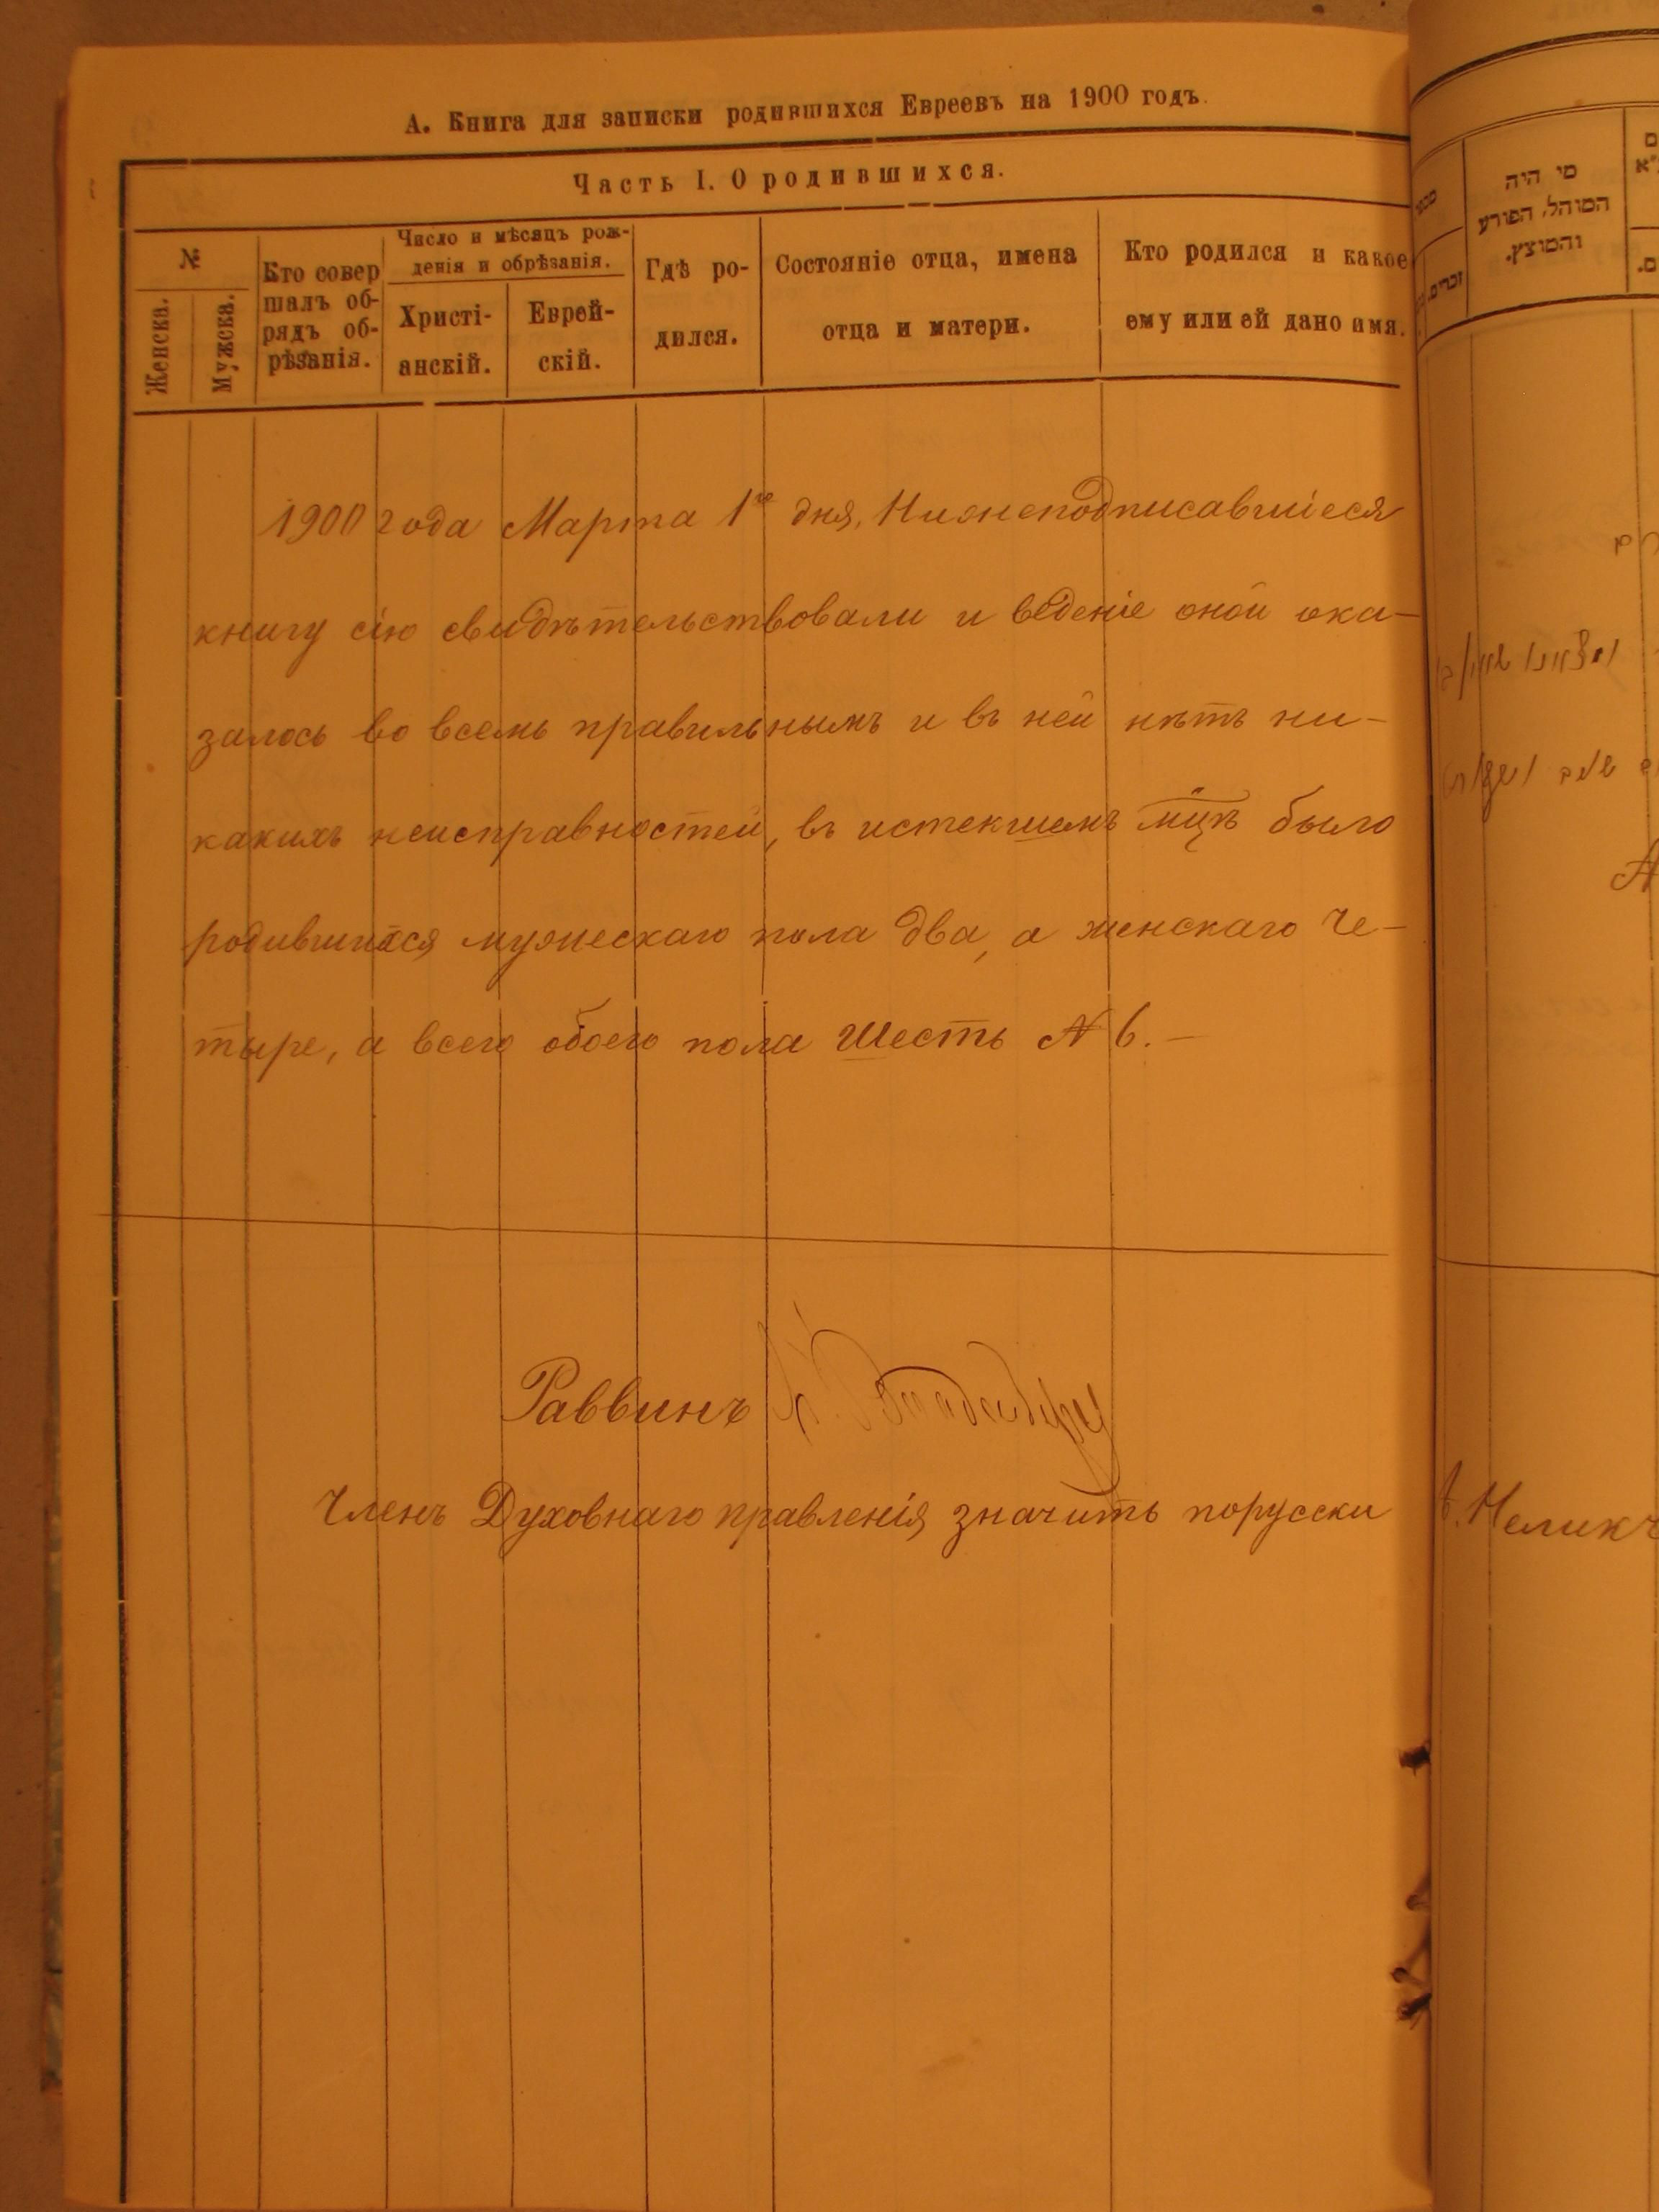 А. Книга для записки родившихся Евреевъ на 1900 годъ.
Часть I. О родившихся.
№
Женска.
Мужска.
Кто совер
шалъ об-
рядъ об-
рѣзанія.
Число и мѣсяцъ рож-
денія и обрѣзанія.
Христі-
анскій.
Еврей-
скій.
Гдѣ ро-
дился.
Состояніе отца, имена
отца и матери.
Кто родился и какое
ему или ей дано имя.
1900 года Марта 1го дня, Нижеподписавшіеся
книгу сію свидѣтельствовали и веденіе оной ока-
залось во всемъ правильнымъ и въ ней нѣтъ ни-
какихъ неисправностей, въ истекшемъ мцѣ было
родившихся мужескаго пола два, а женскаго Че-
тыре, а всего обоего пола Шесть № 6. —
Раввинъ
Членъ Духовнаго правленія значитъ порусски
מי היה
המוהל, הפורע
והמוצץ.
מספר
זכרים.